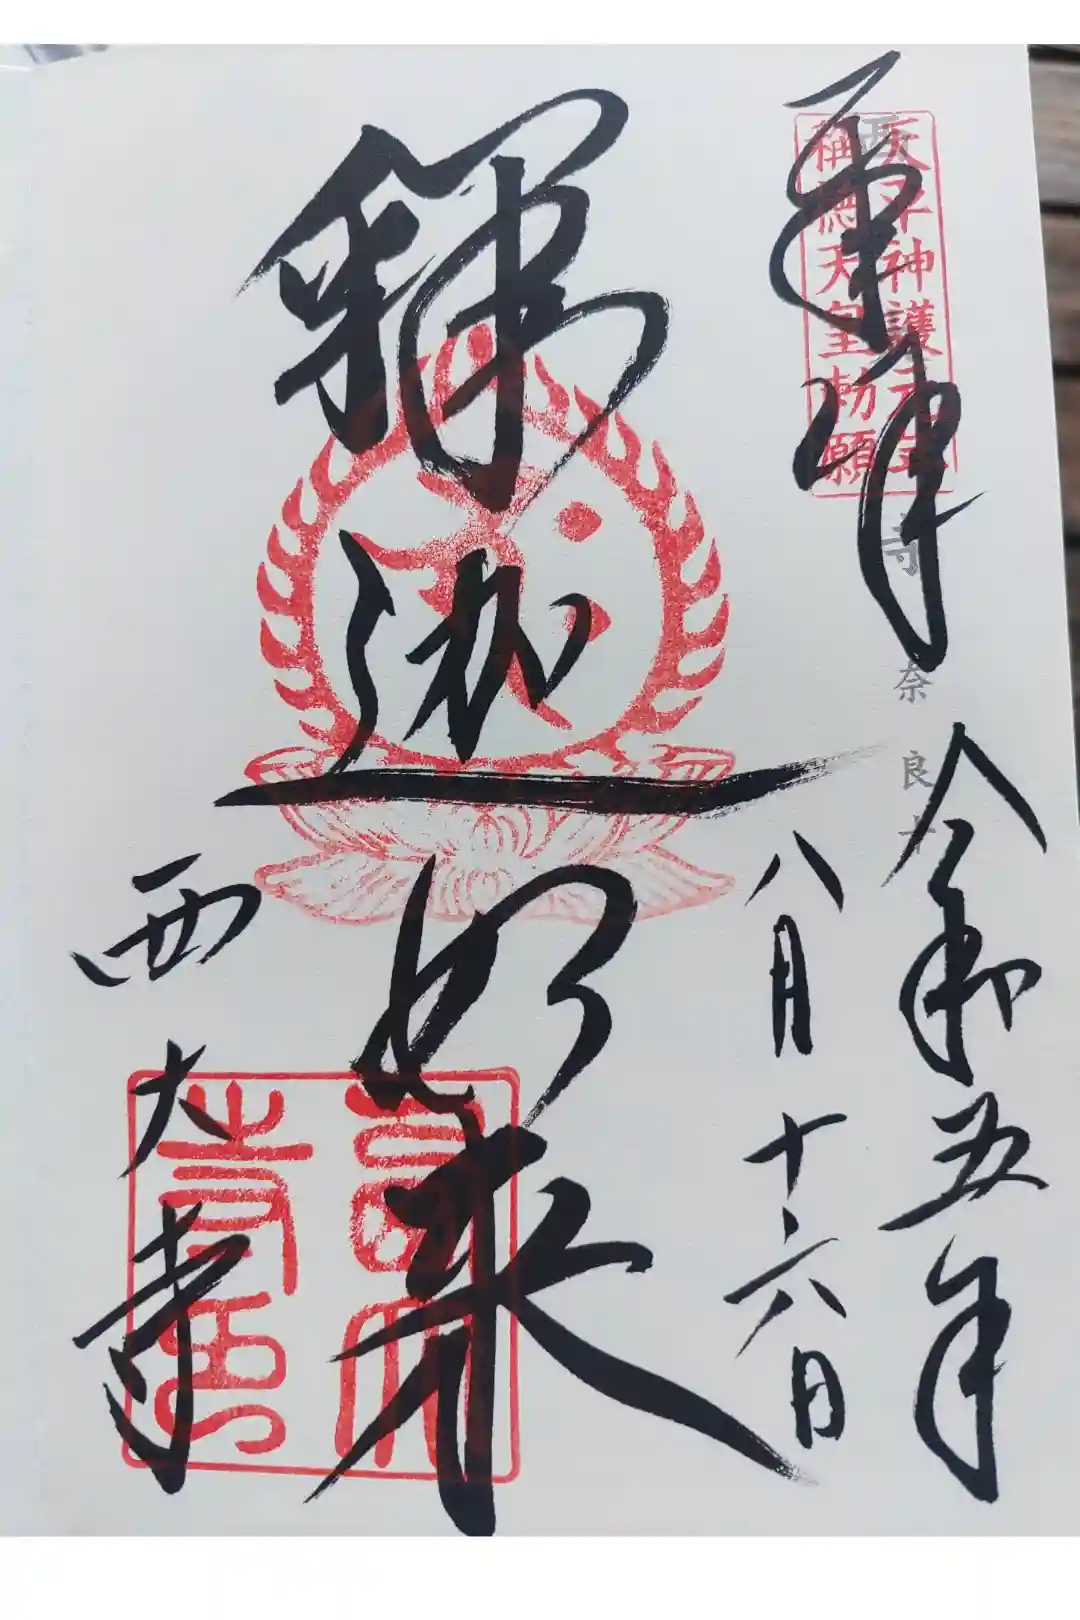 奉拝
天平神護元年
稱德天皇勅願
寺
奈良十
令和五年
八月十六日
釋迦如来
西大寺
西大寺印